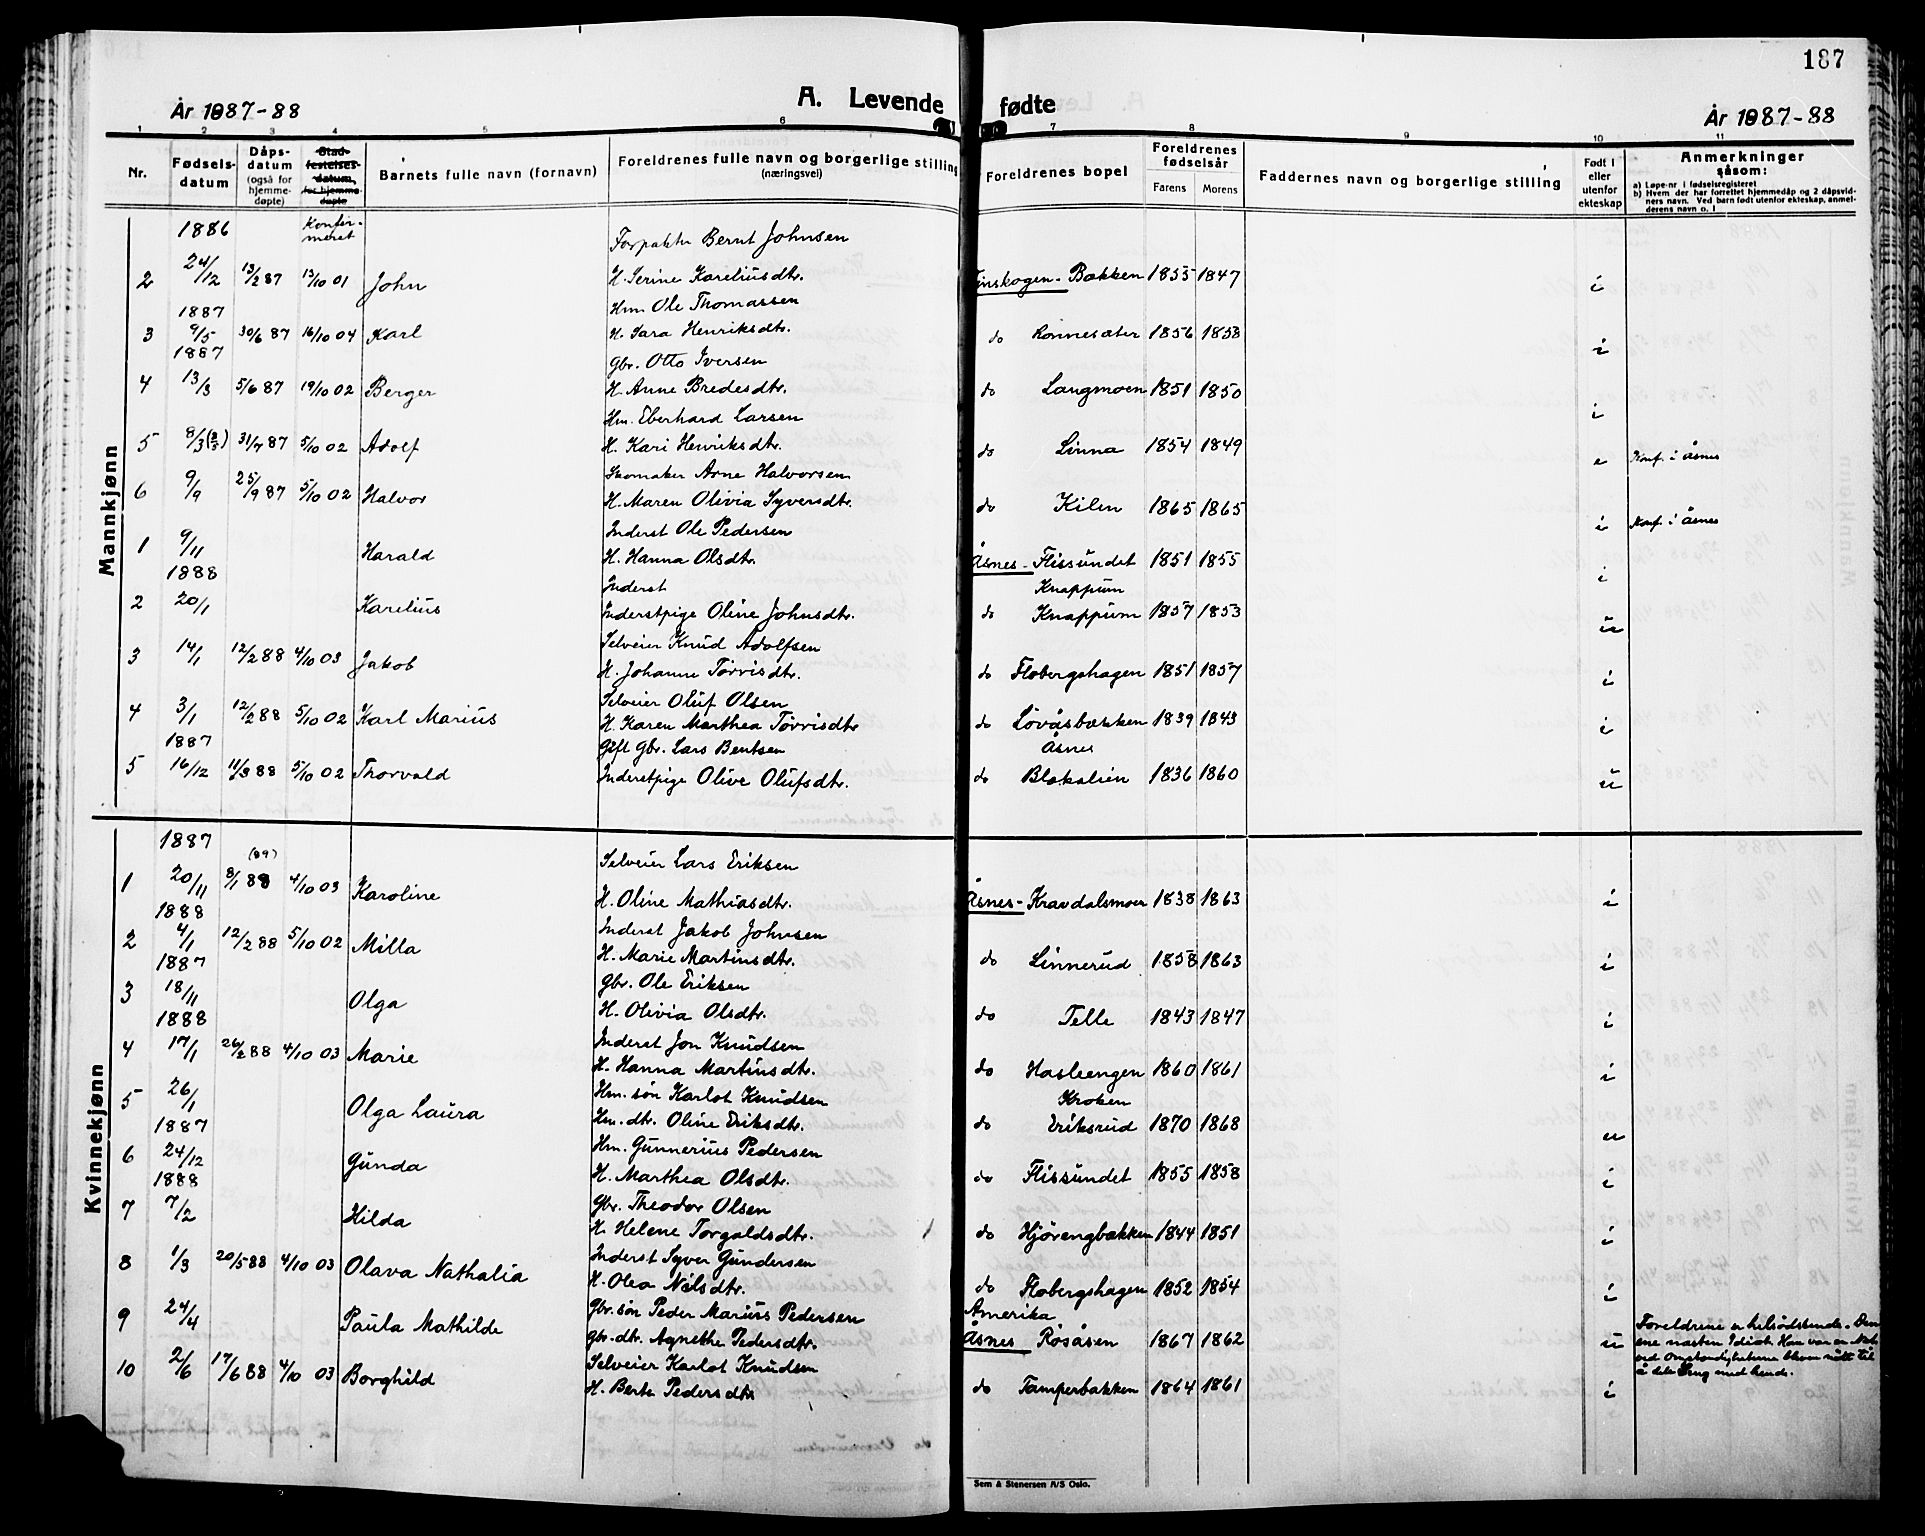 187
År 1887-88 A. Levende fødte År 1887-88
1 2 3 4 5 6 7 8 9 10 11
Nr. Fødsels-datum Dåps-datum (også for hjemme-døpte) Stad-festelses-datum, for hjemme-døpte Barnets fulle navn (fornavn) Foreldrenes fulle navn og borgerlige stilling (næringsvei) Foreldrenes bopel Foreldrenes fødselsår Farens Morens Faddernes navn og borgerlige stilling Født i eller utenfor ekteskap Anmerkninger såsom:
a) Løpe-nr. i fødselsregisteret
b) Hvem der har forrettet hjemmedåp og 2 dåpsvid-
ners navn. Ved barn født utenfor ekteskap, anmel-
derens navn o. l
Mannkjønn
1886 Konfir-meret Forpakter Bernt Johnsen
2 24/12 13/2 87 13/10 01 John H. Serine Kareliusdtr. Finskogen - Bækken 1855 1847 i
1887 Hm Ole Thomassen
3 9/5 30/6 87 16/10 04 Karl H. Sara Henriksdtr. do Rønnesæter 1856 1858 i
1887 Gbr. Otto Iversen
4 13/3 5/6 87 19/10 02 Berger H. Anne Bredesdtr. do Langmoen 1851 1850 i
Hm. Eberhard Larsen
5 8/3 31/7 87 5/10 02 Adolf H. Kari Henriksdtr. do Linna 1854 1849 e Konf. i Åsnes
Skomaker Arne Halvorsen
6 9/9 25/9 87 5/10 02 Halvor H. Maren Olivia Syversdtr. do Kilen 1865 1865 i Konf. i Åsnes
Inderst Ole Pedersen
1 9/11 Harald H. Hanna Olsdtr. Åsnes - Flissundet 1851 1855 i
1888 Inderst Knappum
2 20/1 Karelius Inderstpige Oline Johnsdtr. do Knappum 1857 1853 u
Selveier Knud Adolfsen
3 14/1 12/2 88 4/10 03 Jakob H. Johanne Törrisdtr. do Flobergshagen 1851 1857 i
Selveier Oluf Olsen
4 3/1 12/2 88 5/10 02 Karl Marius H. Karen Marthea Törrisdtr do Lövåsbækken 1839 1843 i
1887 Gift Gbr. Lars Bentsen Åsnes
5 16/12 11/3 88 5/10 02 Thorvald Inderstpige Olive Olufsdtr. do Blekalien 1836 1860 u
Kvinnekjønn
1887 Selveier Lars Eriksen
1 20/11 8/1 88 (89) 4/10 03 Karoline H. Oline Mathiasdtr. Åsnes - Kravdalsmoen 1838 1863 i
1888 Inderst Jakob Johnsen
2 4/1 12/2 88 5/10 02 Milla H. Marie Martinsdtr. do Linnerud 1858 1863 i
1887 Gbr. Ole Eriksen
3 18/11 Olga H. Olivia Olsdtr. do Telle 1843 1847 i
1888 Inderst Jon Knudsen
4 17/1 26/2 88 4/10 03 Marie H. Hanna Martinsdtr. do Hasleengen 1860 1861 i
Hm. søn Karlot Knudsen Kroken
5 26/1 Olga Laura Hm. dtr. Oline Eriksdtr. do Eriksrud 1870 1868 u
1887 Hm. Gunnerius Pedersen
6 24/12 Gunda H. Marthea Olsdtr. do Flissundet 1855 1858 i
1888 Gbr. Theodor Olsen
7 7/2 Hilda H. Helene Torgalsdtr. do Hjörengbækken 1844 1851 i
Inderst Syver Gundersen
8 1/3 20/5 88 4/10 03 Olava Nathalia H. Olea Nilsdtr. do Flobergshagen 1852 1854 i
Gbr. søn Peder Marius Pedersen Amerika
9 24/4 Paula Mathilde Gbr. dtr. Agnethe Pedersdtr. Åsnes Røsåsen 1867 1862 u
Foreldrene er helsødskende. Den
ene næsten Idiot. Han var en Nat
ved Omstændigheterne bleven nött til
å dele Seng med hende.
Selveier Karlot Knudsen
10 2/6 17/6 88 4/10 03 Borghild H. Berte Pedersdtr do Tamperbækken 1864 1861 i
Sem & Stenersen A/S Oslo.